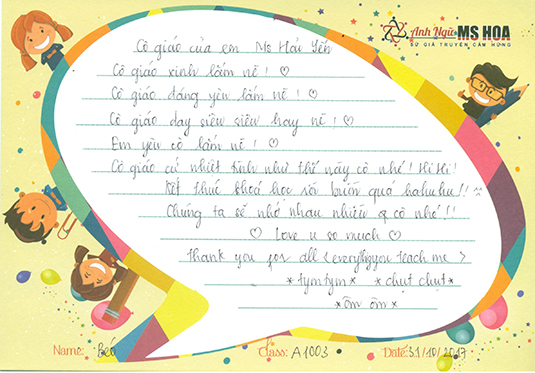 Anh Ngữ MS HOA
SỨ GIẢ TRUYỀN CẢM HỨNG
Cô giáo của em Ms Hải Yến
Cô giáo xinh lắm nè! ♡
Cô giáo đáng yêu lắm nè! ♡
Cô giáo dạy siêu siêu hay nè! ♡
Em yêu cô lắm nè! ♡
Cô giáo cứ nhiệt tình như thế này cô nhé! Hi Hi!
Kết thúc khoá học rồi buồn quá huhuhu!!
Chúng ta sẽ nhớ nhau nhiều cô nhé!!
♡ Love u so much ♡
Thank you for all <everything you teach me>
*tymtym* *chụt chụt*
*ôm ôm*
Name: Béo Class: A1003 Date: 31/10/2017